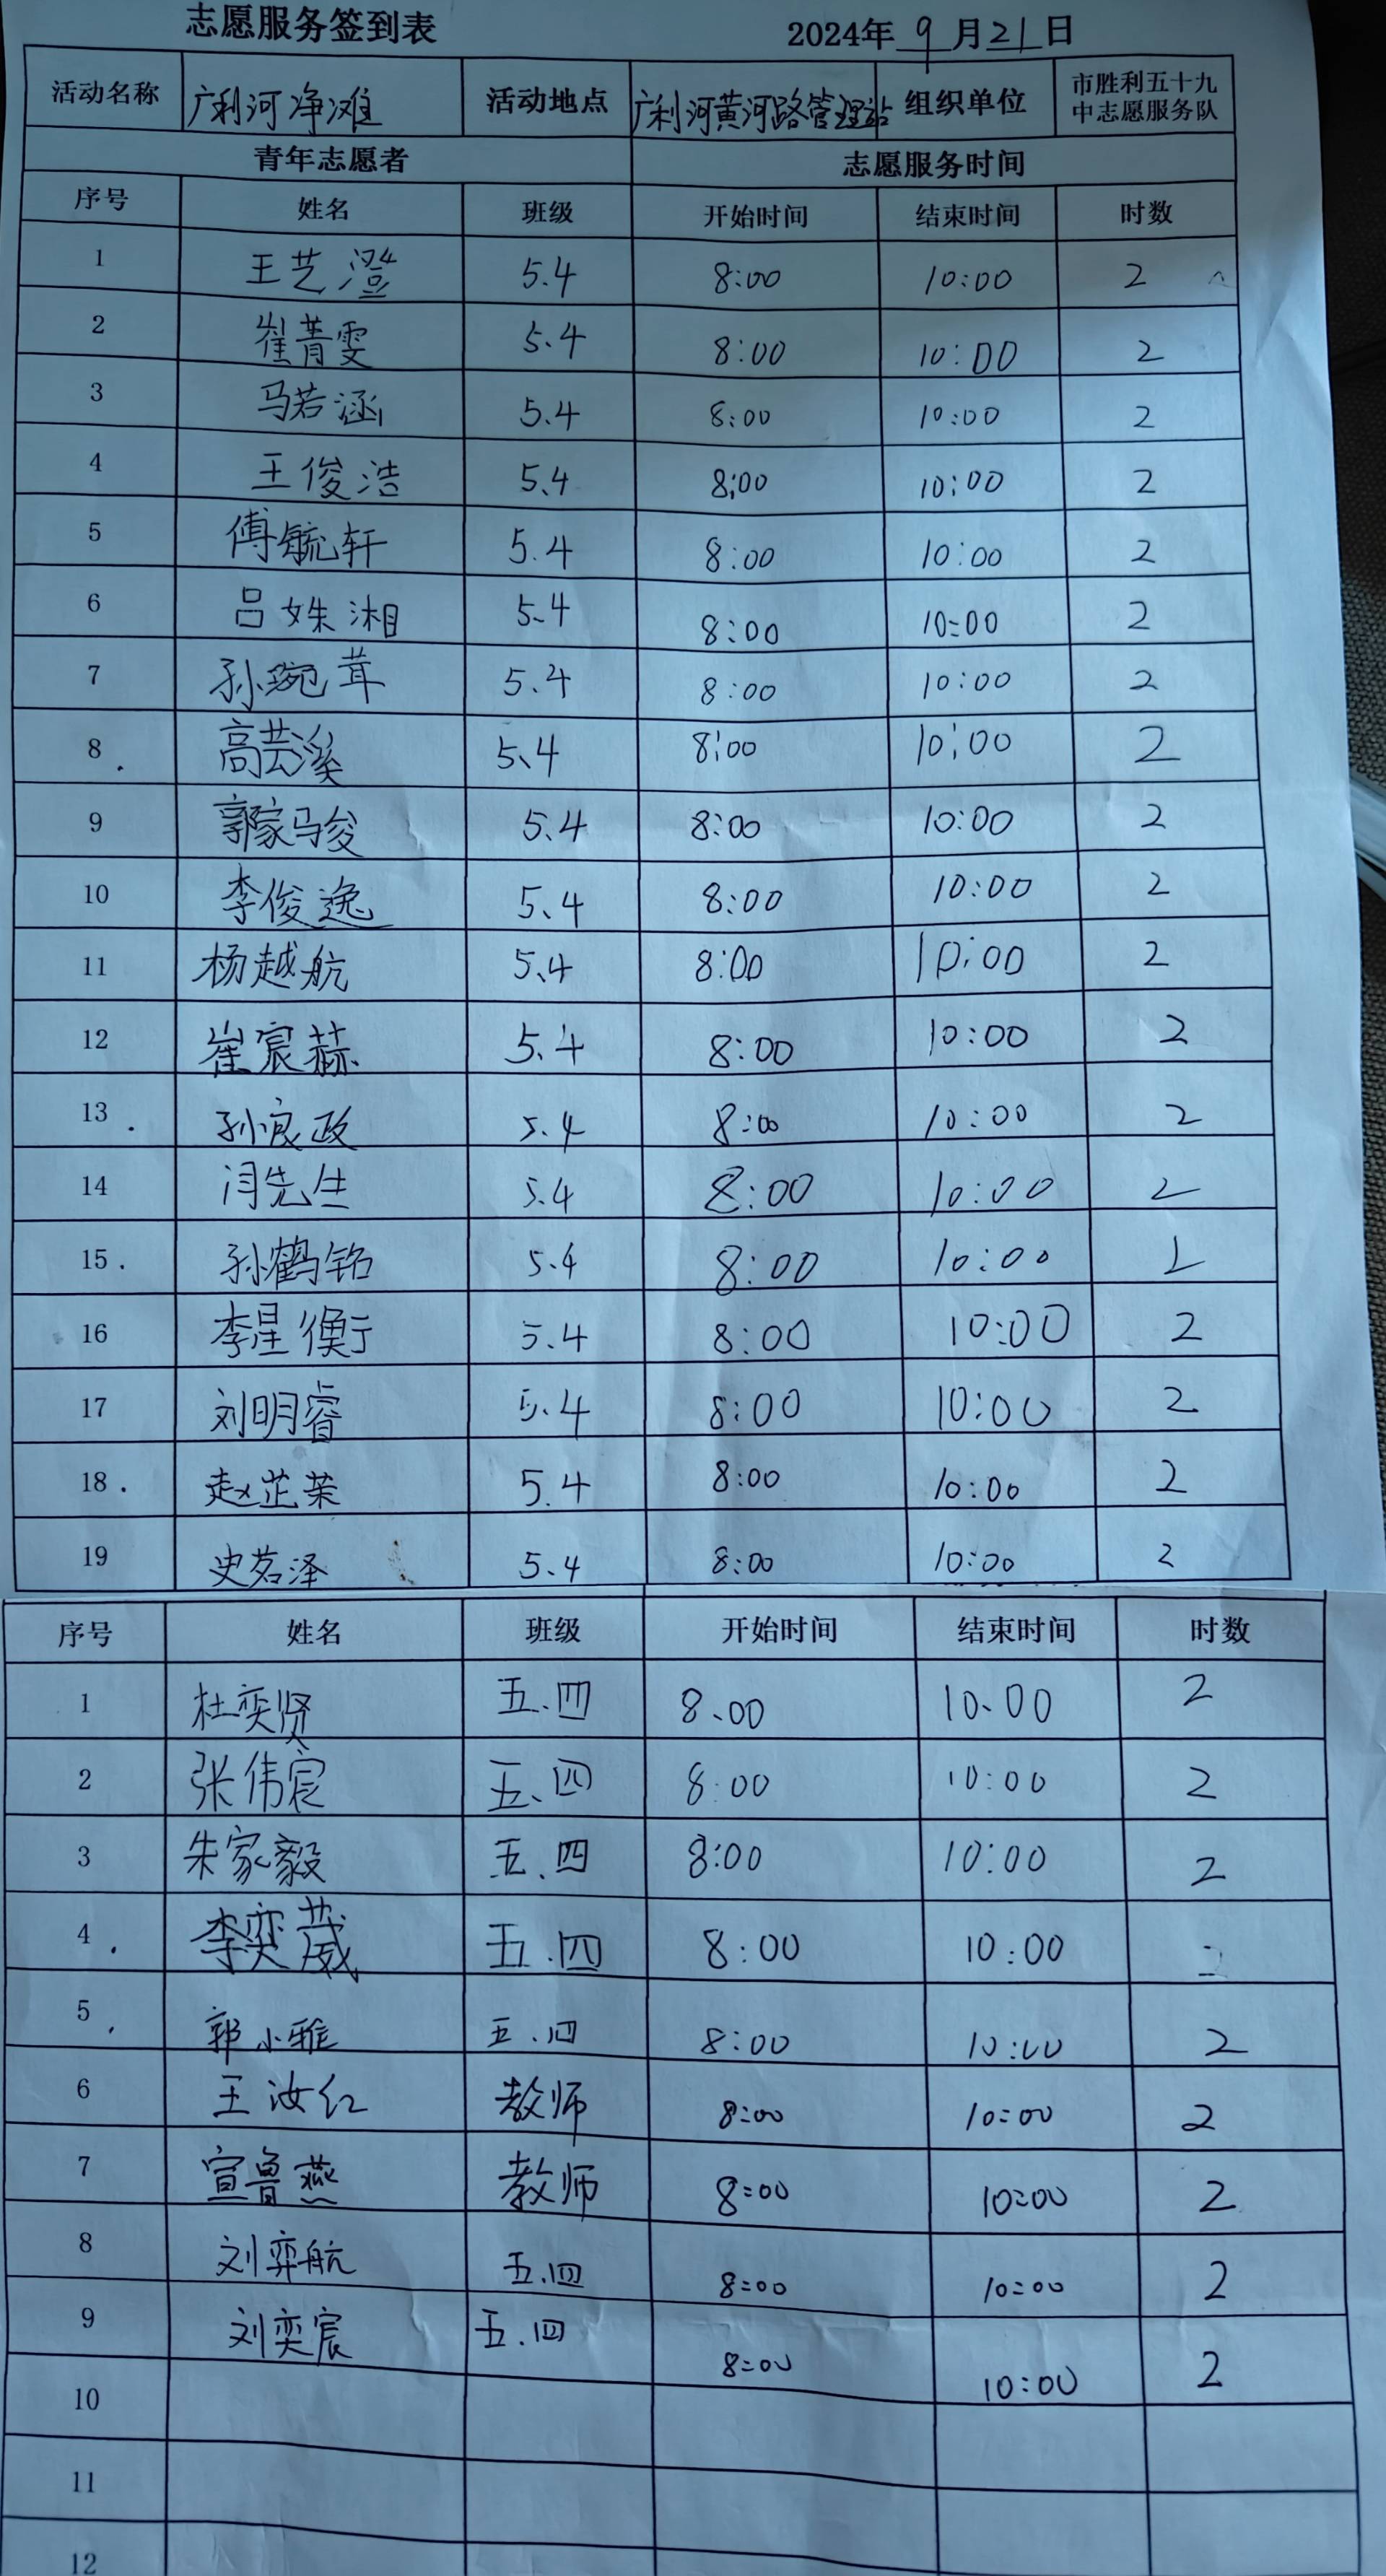 志愿服务签到表 2024年 9 月 21 日
活动名称 广利河净滩 活动地点 广利河黄河路管理站 组织单位 市胜利五十九
中志愿服务队
青年志愿者 志愿服务时间
序号 姓名 班级 开始时间 结束时间 时数
1 王艺澄 5.4 8:00 10:00 2
2 崔菁雯 5、4 8:00 10:00 2
3 马若涵 5、4 8:00 10:00 2
4 王俊浩 5.4 8:00 10:00 2
5 傅毓轩 5.4 8:00 10:00 2
6 吕姝湘 5.4 8:00 10:00 2
7 孙琬茸 5.4 8:00 10:00 2
8 高芸溪 5、4 8:00 10:00 2
9 郭家骏 5.4 8:00 10:00 2
10 李俊逸 5、4 8:00 10:00 2
11 杨越航 5、4 8:00 10:00 2
12 崔宸赫 5.4 8:00 10:00 2
13 孙宸政 5.4 8:00 10:00 2
14 闫先生 5.4 8:00 10:00 2
15 孙鹤铭 5.4 8:00 10:00
16 李星衡 5.4 8:00 10:00 2
17 刘明睿 5.4 8:00 10:00 2
18 赵芷荣 5.4 8:00 10:00 2
19 史茗泽 5.4 8:00 10:00 2
序号 姓名 班级 开始时间 结束时间 时数
1 杜奕贤 五、四 8、00 10、00 2
2 张伟宸 五、四 8:00 10:00 2
3 朱家毅 五、四 8:00 10:00 2
4 李奕葳 五.四 8:00 10:00 2
5 郭小雅 五.四 8:00 10:00 2
6 王汝红 教师 8:00 10:00 2
7 宣鲁燕 教师 8:00 10:00 2
8 刘弈航 五.四 8:00 10:00 2
9 刘奕宸 五.四 8:00 10:00 2
10
11
12